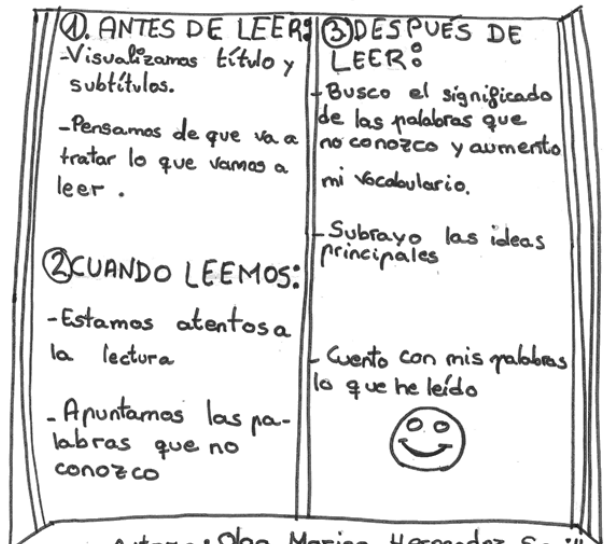 1. ANTES DE LEER:
-Visualizamos título y
subtítulos.
-Pensamos de que va a
tratar lo que vamos a
leer.
2 CUANDO LEEMOS:
-Estamos atentos a
la lectura
-Apuntamos las pa-
labras que no
conozco
3 DESPUÉS DE
LEER:
-Busco el significado
de las palabras que
no conozco y aumento
mi vocabulario.
-Subrayo las ideas
principales
-Cuento con mis palabras
lo que he leído
Olga Marina Hernandez